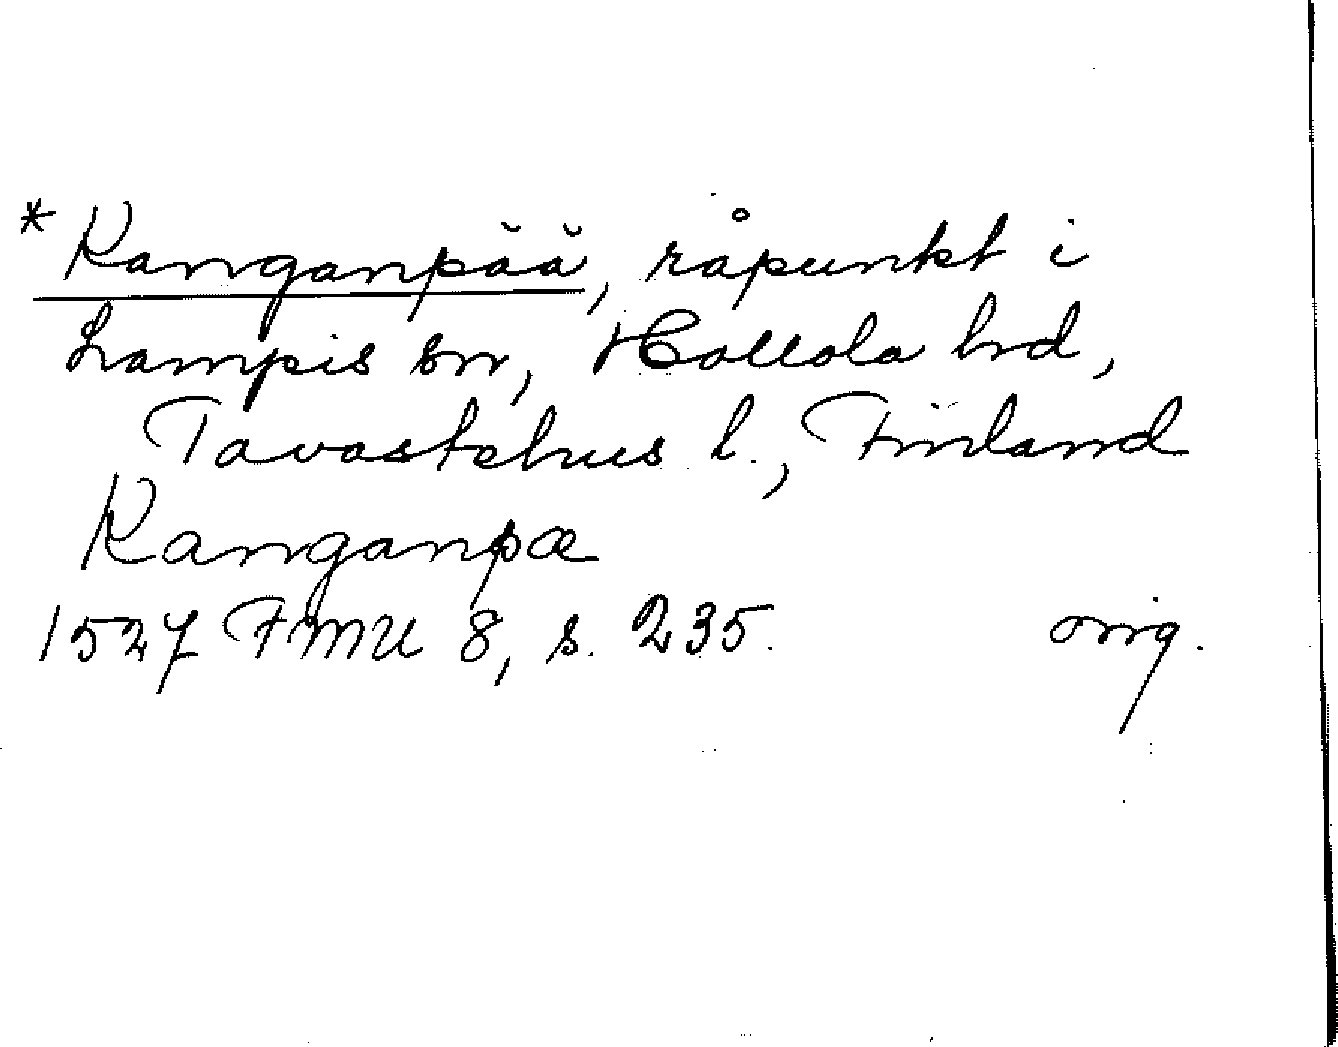 * Kanganpää, råpunkt i
Lampis sn, Hollola hd,
Tavastehus l., Finland
Kanganpæ
1527 FMU 8, s. 235. orig.